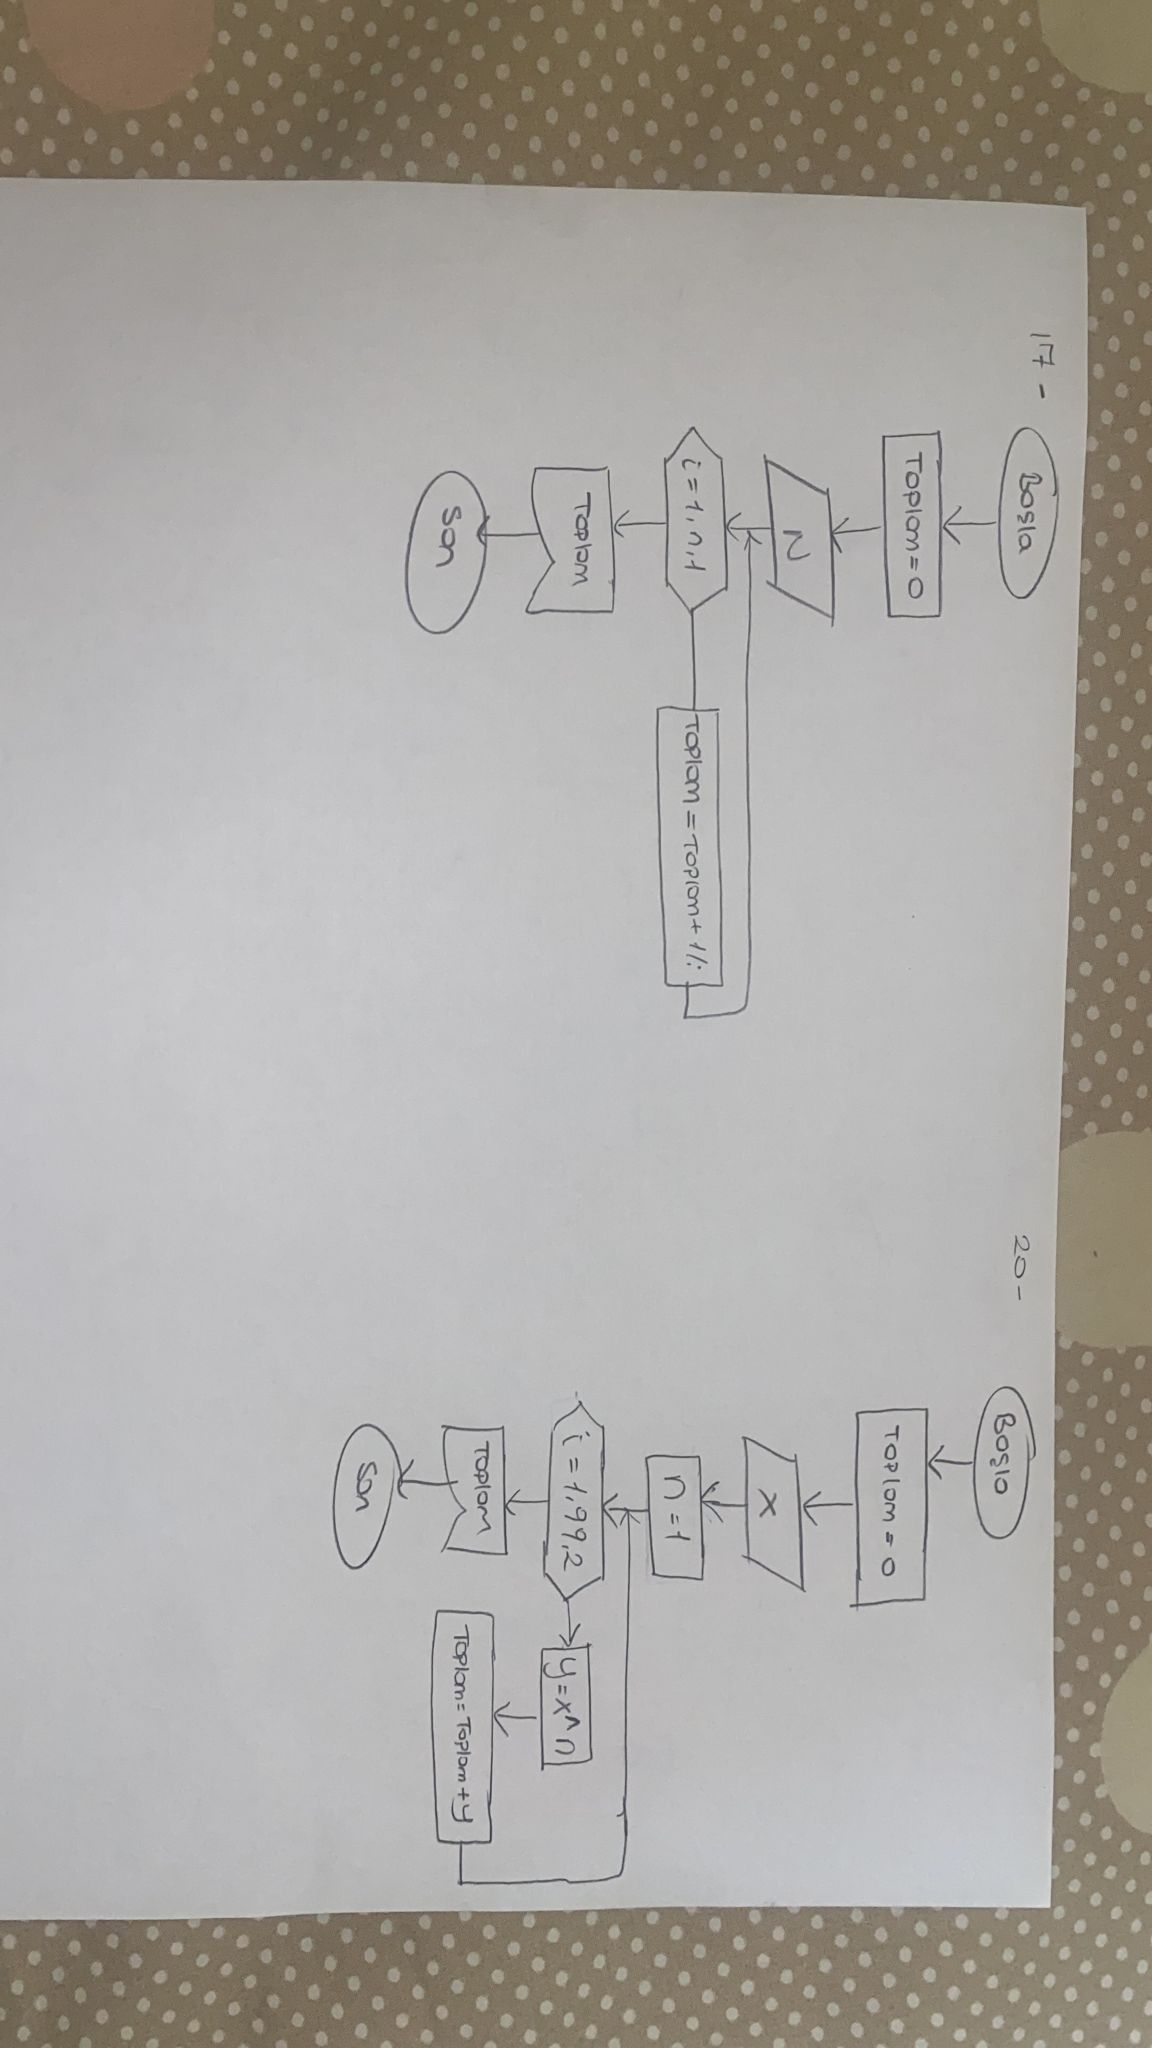 17-
Başla
Toplam=0
N
i=1,n,1
Toplam=Toplam+1/i
Toplam
Son
20-
Başla
Toplam=0
X
n=1
i=1,99,2
y=x^n
Toplam=Toplam+y
Toplam
Son